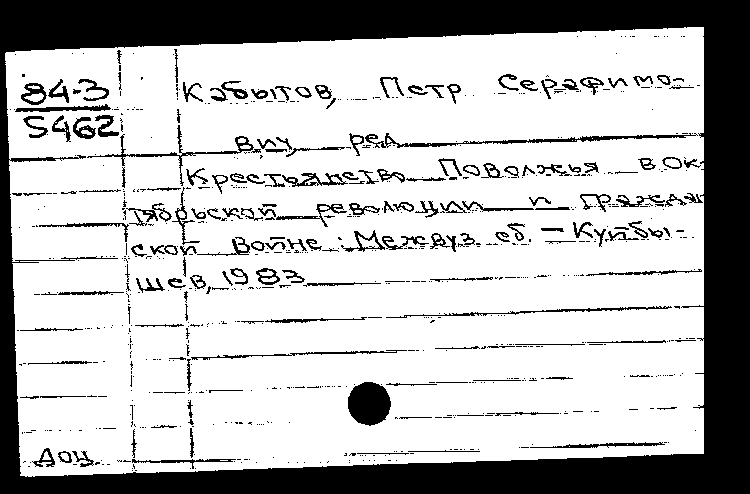 84-3
5462
Кабытов, Петр Серафимо-
вич, ред
Крестьянство Поволжья в Ок-
тябрьской революции и граждан
ской войне : Межвуз сб. — Куйбы-
шев, 1983
Доц